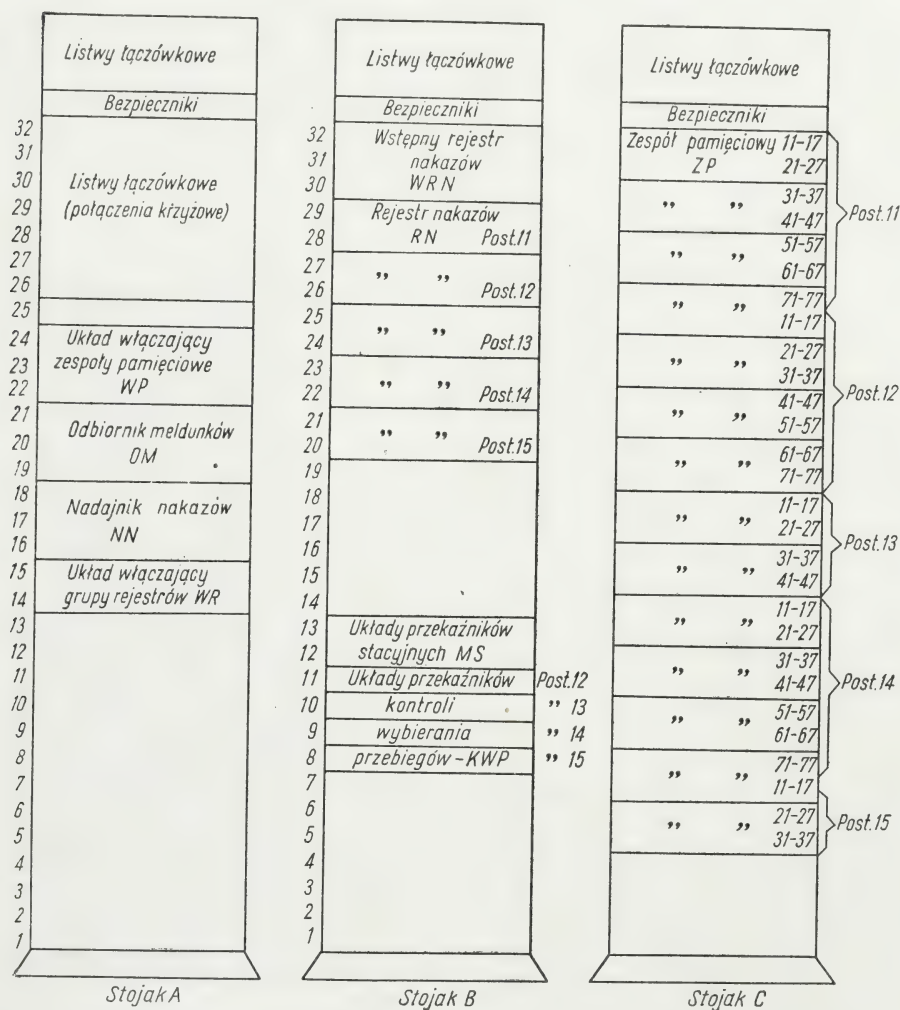 Listwy łączówkowe
Bezpieczniki
32
31
30
29
28
27
26
25
24
23
22
21
20
19
18
17
16
15
14
13
12
11
10
9
8
7
6
5
4
3
2
1
Listwy łączówkowe
(połączenia krzyżowe)
Układ włączający
zespoły pamięciowe
WP
Odbiornik meldunków
OM
Nadajnik nakazów
NN
Układ włączający
grupy rejestrów WR
Stojak A
Listwy łączówkowe
Bezpieczniki
32
31
30
29
28
27
26
25
24
23
22
21
20
19
18
17
16
15
14
13
12
11
10
9
8
7
6
5
4
3
2
1
Wstępny rejestr
nakazów
WRN
Rejestr nakazów
RN Post.11
„ „ Post.12
„ „ Post.13
„ „ Post.14
„ „ Post.15
Układy przekaźników
stacyjnych MS
Układy przekaźników Post.12
kontroli „ 13
wybierania „ 14
przebiegów-KWP „ 15
Stojak B
Listwy łączówkowe
Bezpieczniki
Zespół pamięciowy 11-17
ZP 21-27
„ „ 31-37
41-47
Post.11
„ „ 51-57
61-67
„ „ 71-77
11-17
„ „ 21-27
31-37
„ „ 41-47
51-57
Post.12
„ „ 61-67
71-77
„ „ 11-17
21-27
Post.13
„ „ 31-37
41-47
„ „ 11-17
21-27
„ „ 31-37
41-47
Post.14
„ „ 51-57
61-67
„ „ 71-77
11-17
„ „ 21-27
31-37
Post.15
Stojak C